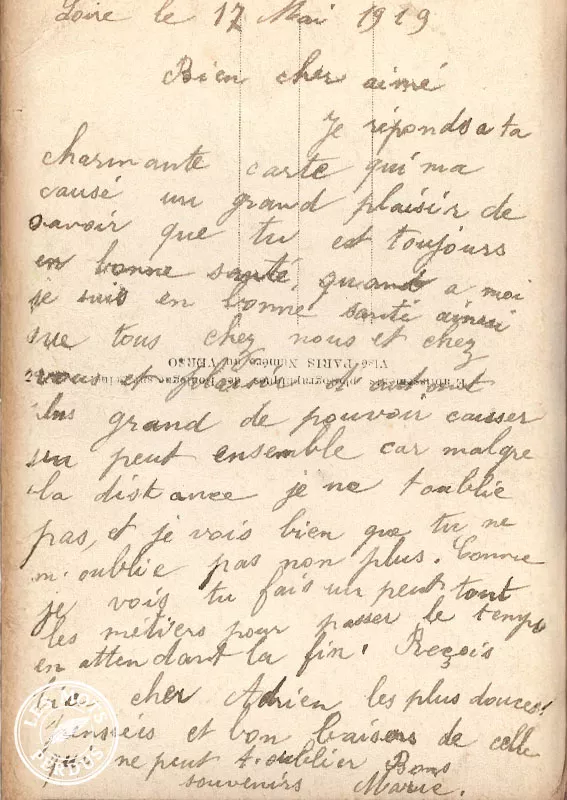 Loire le 17 Mai 1919
Bien cher aimé
Je réponds a ta
charmante carte qui ma
causé un grand plaisir de
savoir que tu est toujours
en bonne santé quant a moi
je suis en bonne santé ainsi
que tous chez nous et chez
VISÉ PARIS Numéro au VERSO
vous et plaisir et autant
plus grand de pouvoir causser
un peut ensemble car malgre
la distance je ne t oublie
pas, et je vois bien que tu ne
m'oublie pas non plus. Comme
je vois tu fais un peut tout
les métiers pour passer le temps
en attendant la fin. Reçois
bien cher Adrien les plus douces
pensseés et bon baisers de celle
qui ne peut t.oublier Bons
souvenirs Marie.